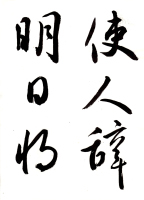 使人辞
明日将